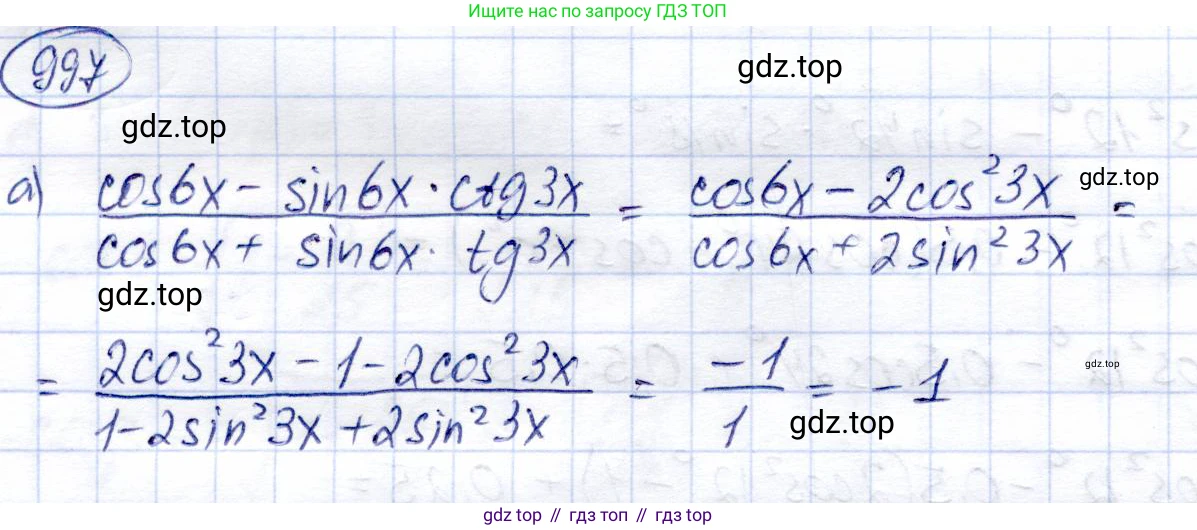 Ищите нас по запросу ГДЗ ТОП
997
gdz.top
gdz.top
а) (cos6x - sin6x · ctg3x)/(cos6x + sin6x · tg3x) = (cos6x - 2cos²3x)/(cos6x + 2sin²3x) =
gdz.top
gdz.top
= (2cos²3x - 1 - 2cos²3x)/(1 - 2sin²3x + 2sin²3x) = -1/1 = -1
gdz.top
gdz.top
gdz top // гдз топ // gdz top